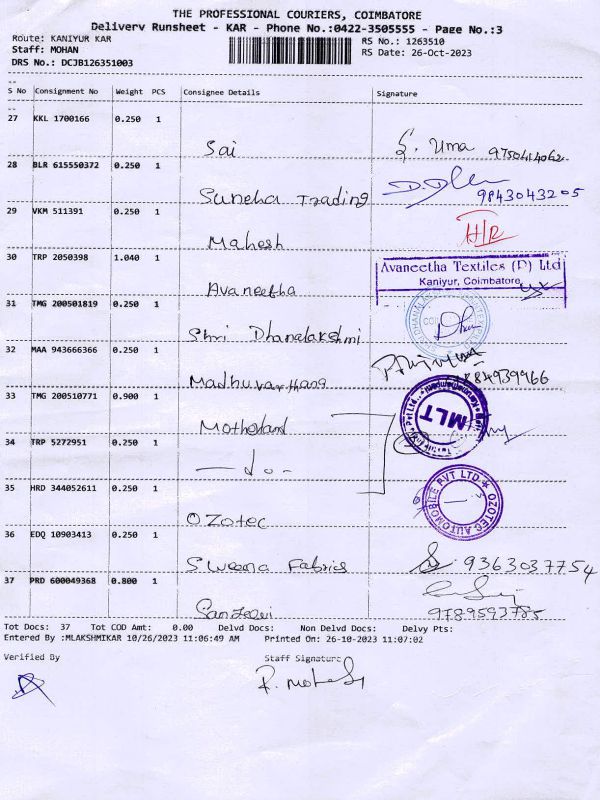 THE PROFESSIONAL COURIERS, COIMBATORE
Delivery Runsheet - KAR - Phone No.:0422-3505555 - Page No.:3
Route: KANIYUR KAR
RS No.: 1263510
Staff: MOHAN
RS Date: 26-Oct-2023
DRS No.: DCJB126351003
S No Consignment No Weight PCS Consignee Details Signature
27 KKL 1700166 0.250 1
Sai S. Uma
28 BLR 615550372 0.250 1
Suneha Trading 9843043205
29 VKM 511391 0.250 1
Mahesh H/R
30 TRP 2050398 1.040 1
Avaneetha Avaneetha Textiles (P) Ltd
Kaniyur, Coimbatore
31 TMG 200501819 0.250 1
Shri Dhanalakshmi Dha
32 MAA 943666366 0.250 1
Madhuvarthana
33 TMG 200510771 0.900 1
Motherland MLT
34 TRP 5272951 0.250 1
— do -
35 HRD 344052611 0.250 1
Ozotec OZOTEC AUTOMOBILE PVT LTD
36 EDQ 10903413 0.250 1
Sweena Fabrics 9363037754
37 PRD 600049368 0.800 1
9789593785
Tot Docs: 37 Tot COD Amt: 0.00 Delvd Docs: Non Delvd Docs: Delvy Pts:
Entered By :MLAKSHMIKAR 10/26/2023 11:06:49 AM Printed On: 26-10-2023 11:07:02
Verified By Staff Signature